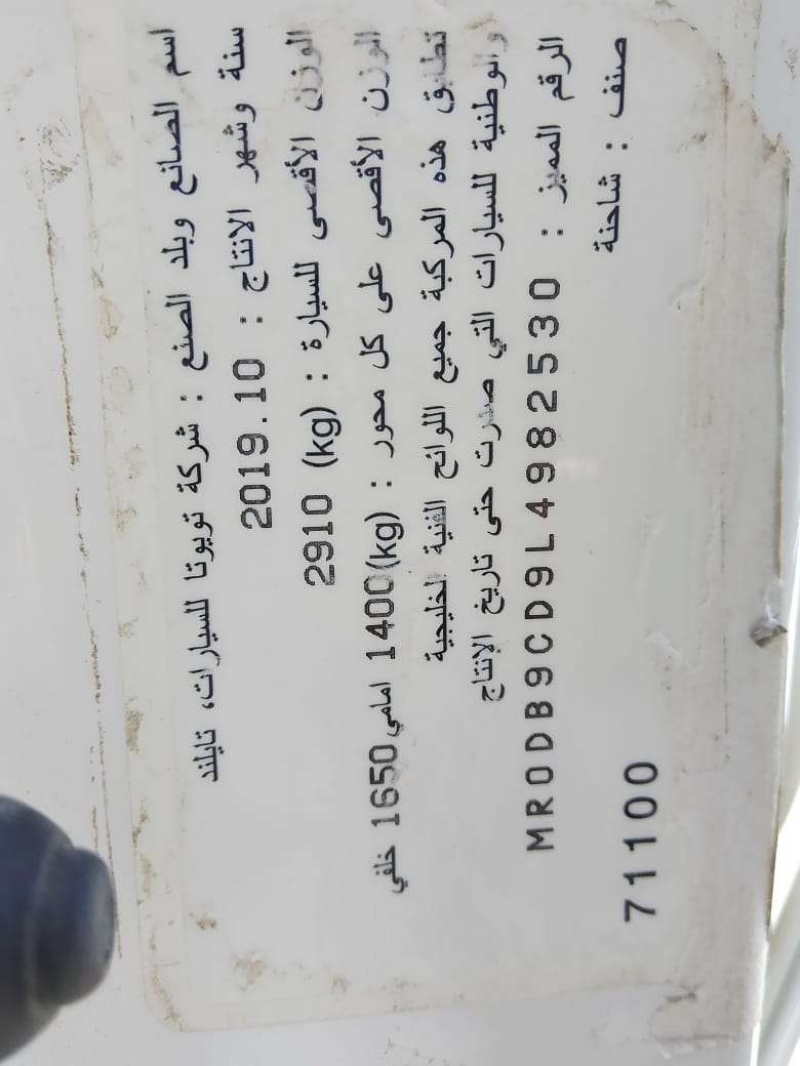 اسم الصانع وبلد الصنع : شركة تويوتا للسيارات، تايلند
سنة وشهر الانتاج : 2019.10
الوزن الأقصى للسيارة : (kg) 2910
الوزن الأقصى على كل محور : (kg)1400 امامي 1650 خلفي
تطابق هذه المركبة جميع اللوائح الفنية الخليجية
والوطنية للسيارات التي صدرت حتى تاريخ الإنتاج
الرقم المميز : MR0DB9CD9L4982530
صنف : شاحنة
71100